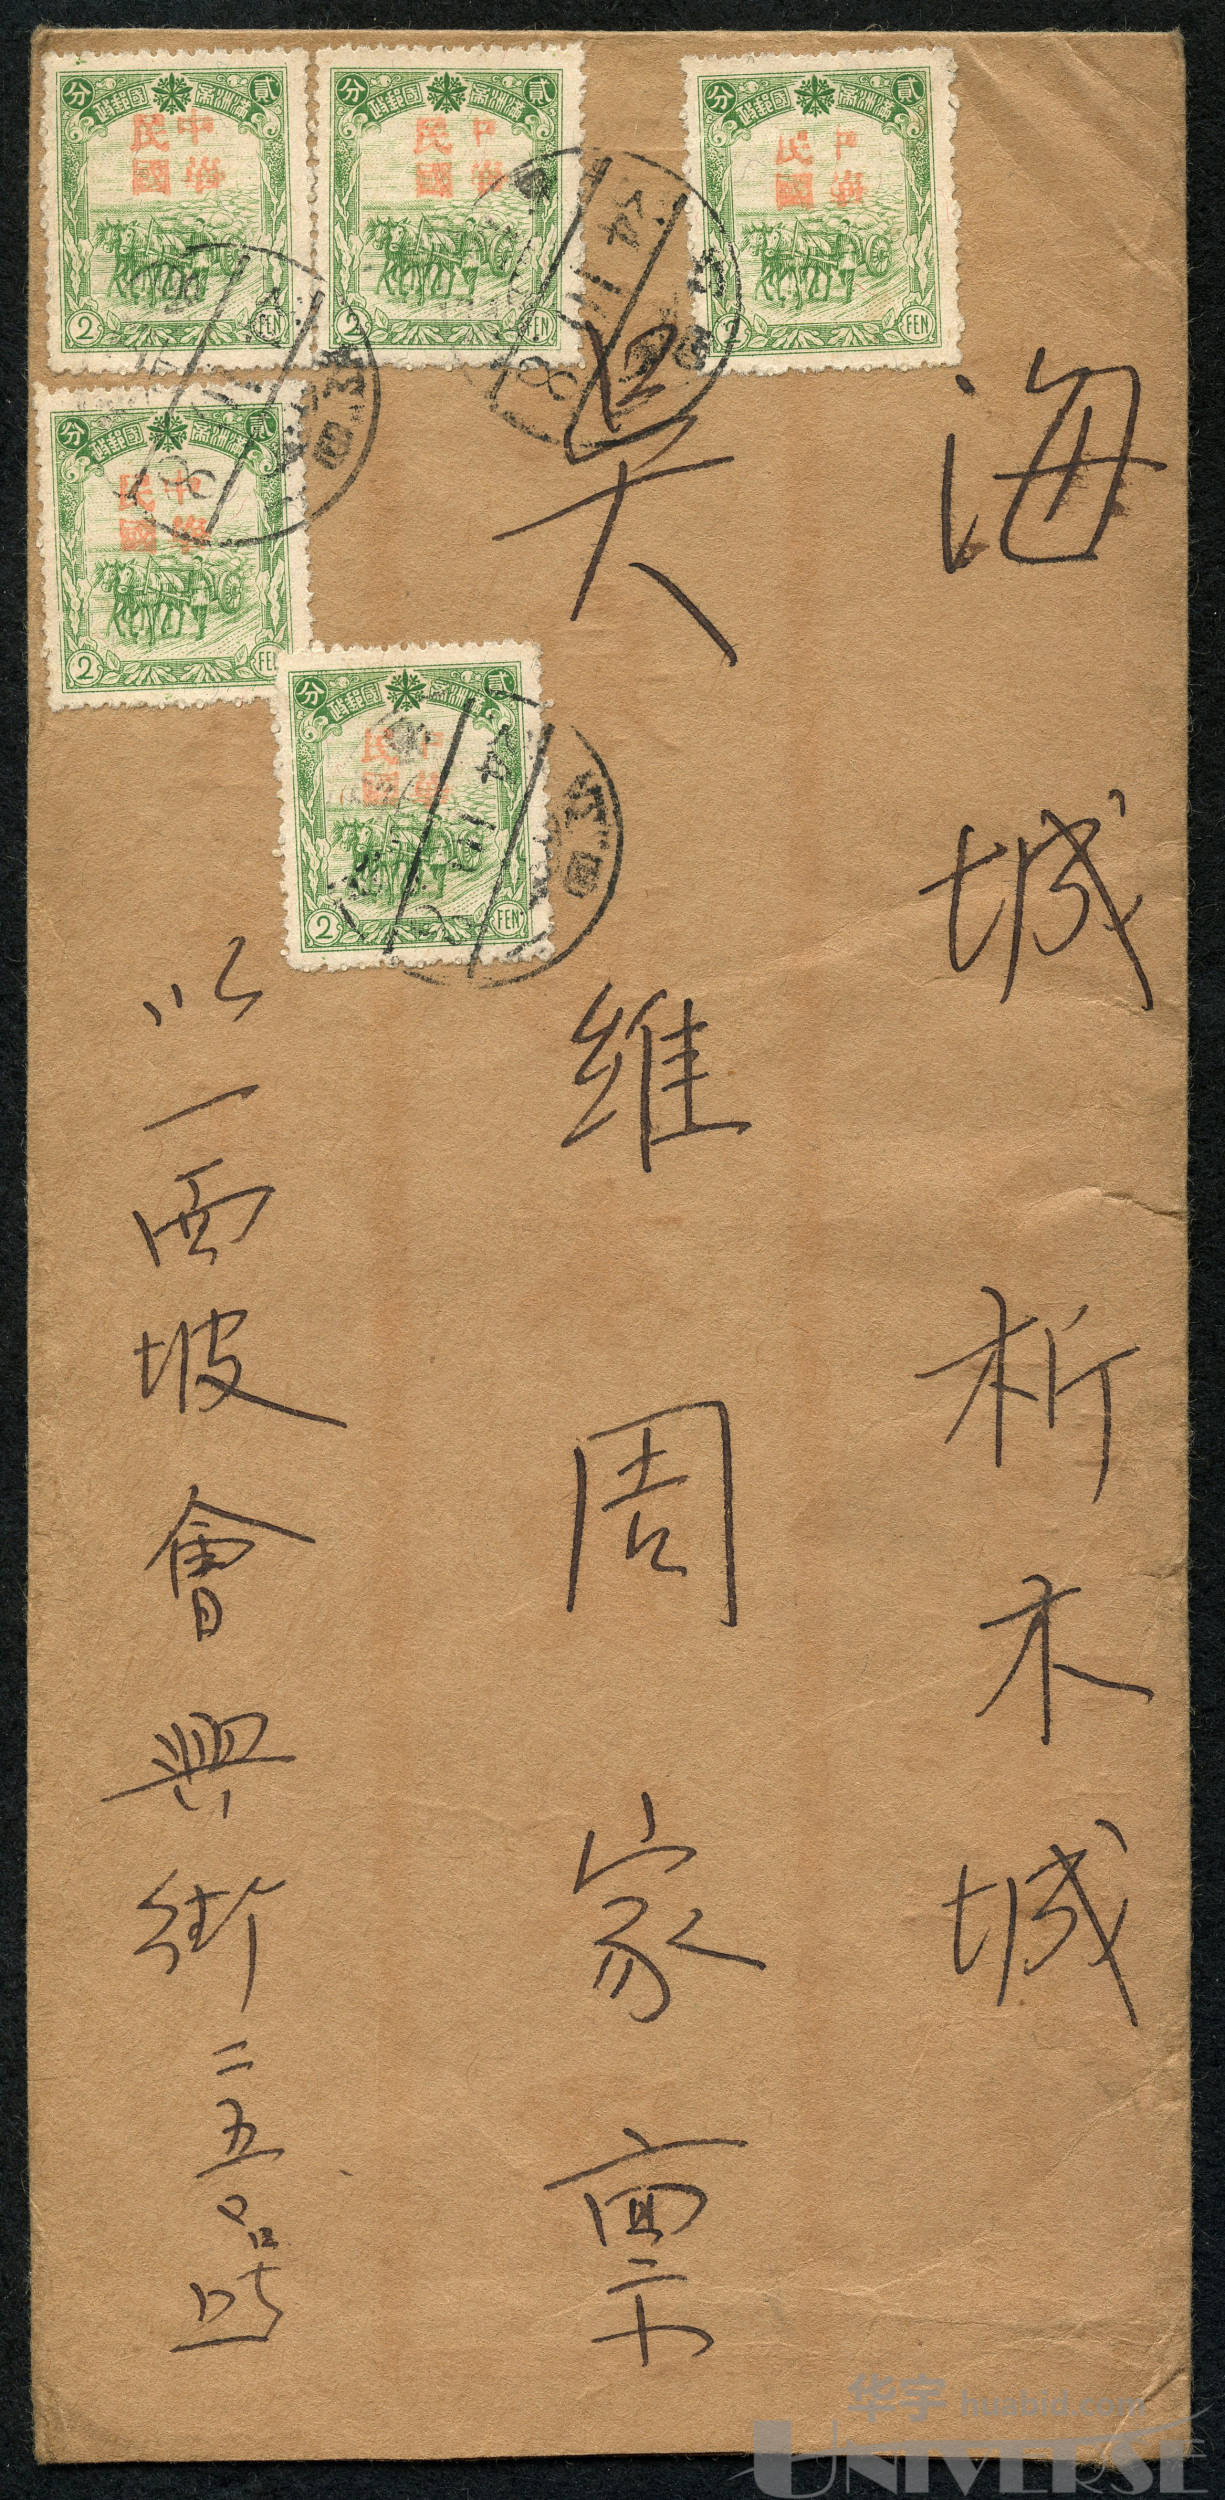 海城析木城
吴維周家稟
以一西坡會興街二五号
貳 滿洲 國郵政 分
中華
民國
2 FEN
貳 滿洲 國郵政 分
中華
民國
2 FEN
貳 滿洲 國郵政 分
中華
民國
2 FEN
貳 滿洲 國郵政 分
中華
民國
2 FEN
貳 滿洲 國郵政 分
中華
民國
2 FEN
华宇 huabid.com
UNIVERSE